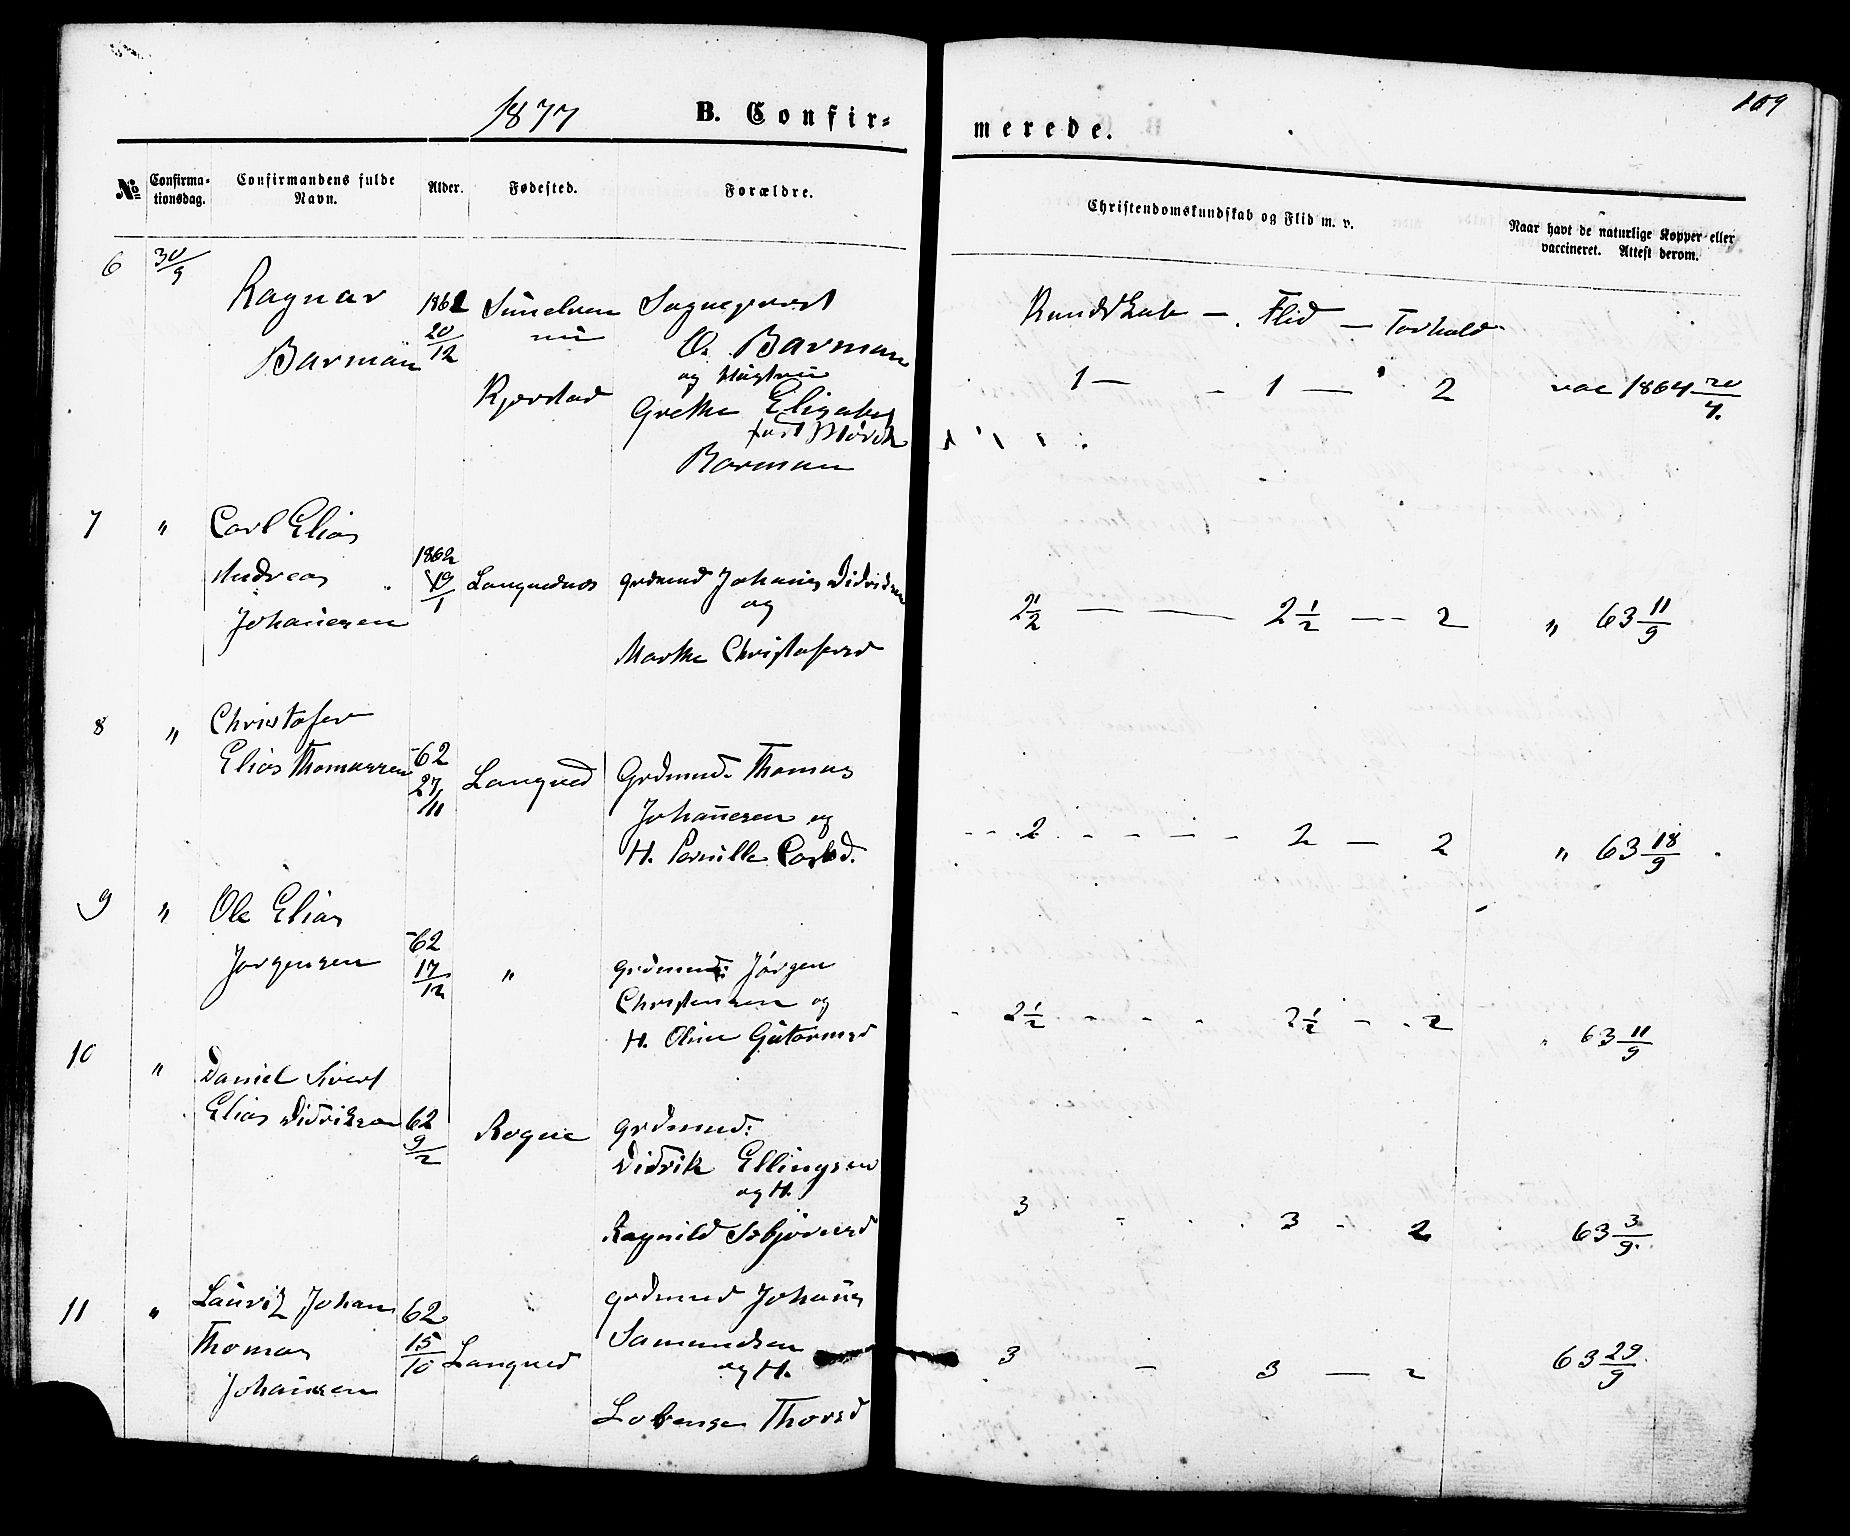 1877 B. Confir-
merede.
109
№ Confirma-tionsdag. Confirmandens fulde Navn. Alder. Fødested. Forældre.
Christendomskundskab og Flid m. v. Naar havt de naturlige Kopper eller vaccineret. Attest derom.
6 30/9 Ragnar 1862 Sognepræst
Barman 20/12 O. Barman
og Hustru
Kjerstad Grethe Elisabet
født Mørch
Barman
Kundskab — Flid — Forhold
1 — 1 — 2 vac 1864 20/4.
7 " Carl Elias
Andreas 1862 19/1 Langvednes grdmnd Johanes Didriksen
og
Johanesen
Marthe Christofersd
2½ — — 2½ — 2 " 63 11/9
8 " Christofer
Elias Thomassen -62 27/11 Langved Grdmnd. Thomas
Johanesen og
H. Pernille Carlsd.
2 - - - - 2 — 2 " 63 18/9
9 " Ole Elias
Jørgensen -62 17/12 " grdmnd: Jørgen
Christensen og
H. Oline Gutormsd
2½ - - - 2½ - 2 " 63 11/9
10 " Daniel Sivert
Elias Didriksen 62 9/2 Rogne grdmnd:
Didrik Ellingsen
og H.
Ragnild Asbjørnsd
3 - 3 - 2 63 3/9.
11 " Lauritz Johan 62 15/10 grdmnd Johanes
Thomas Langved Samundsen
og H.
Johansen
Lorense Thorsd
3 — 3 — 2 63 29/9